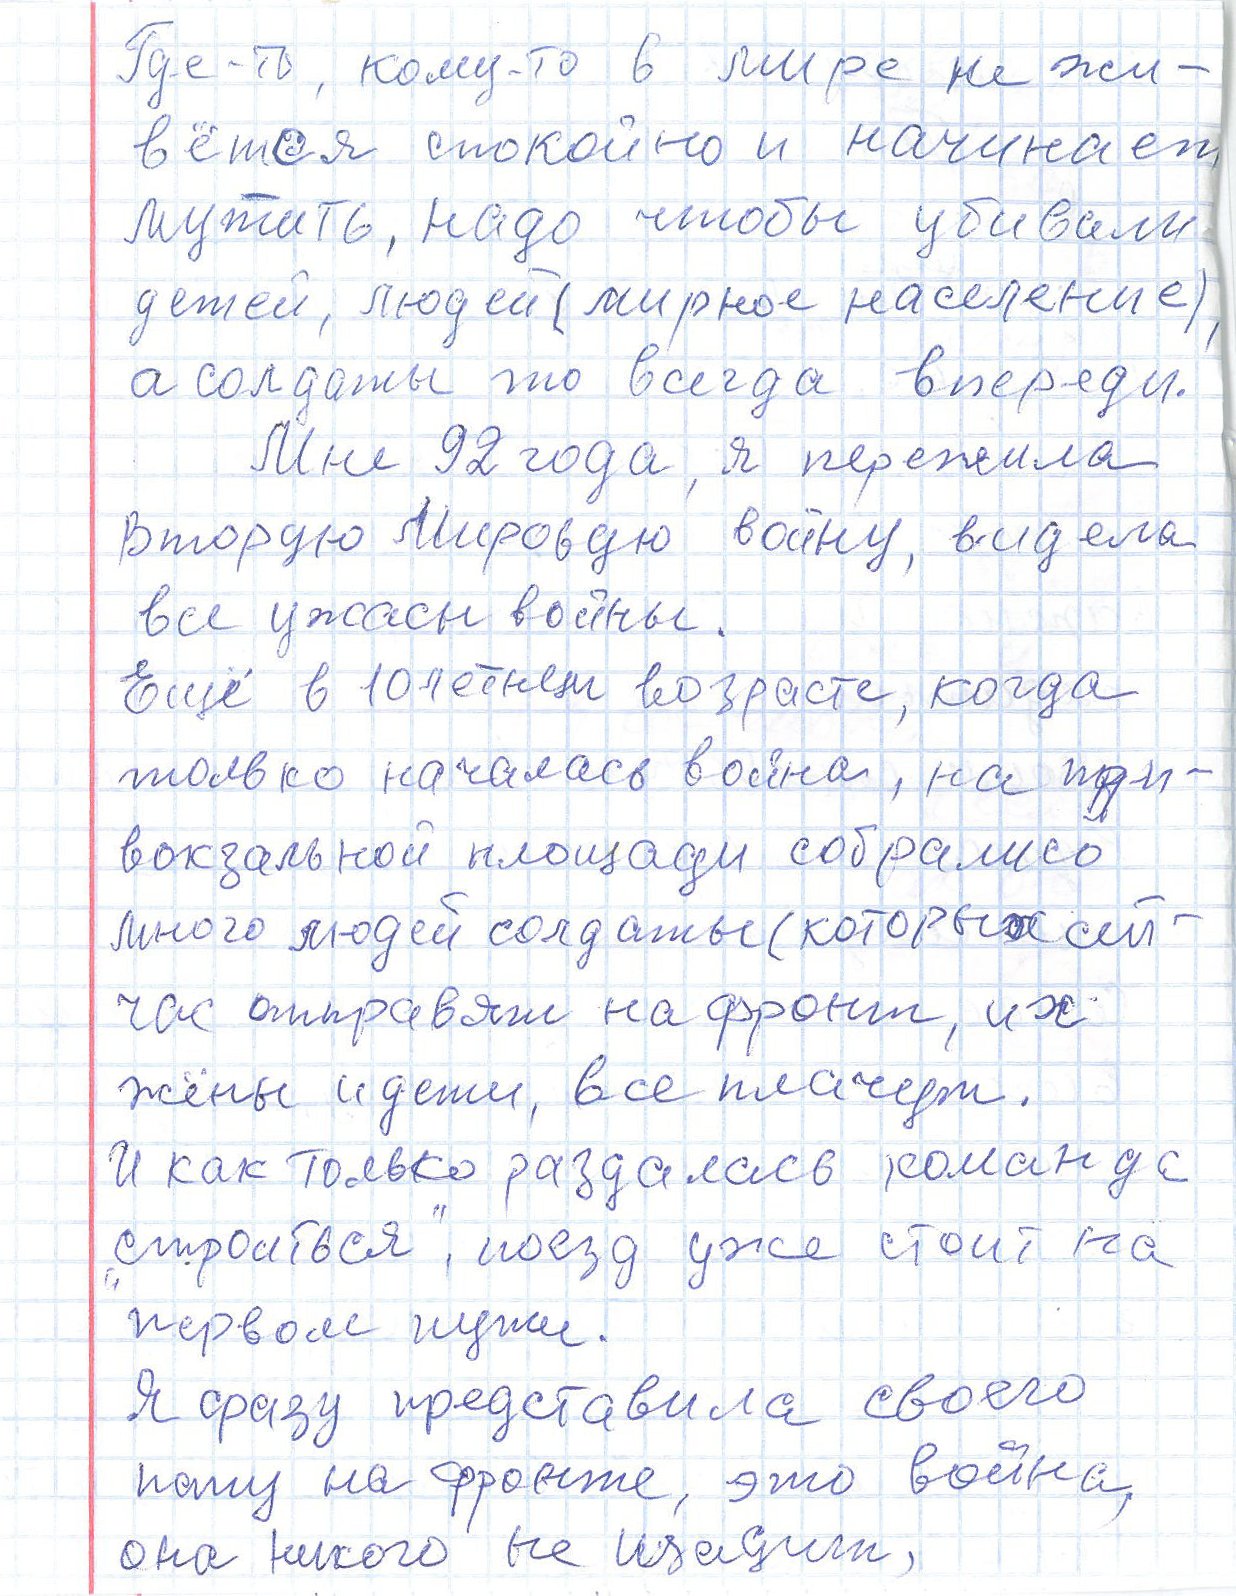 Где-то, кому-то в мире не жи-
вётся спокойно и начинает
мутить, надо чтобы убивали
детей, людей (мирное население),
а солдаты то всегда впереди.
Мне 92 года, я пережила
Вторую Мировую войну, видела
все ужасы войны.
Ещё в 10летнем возрасте, когда
только началась война, на при-
вокзальной площади собрались
много людей солдаты (которых сей-
час отправят на фронт, их
жёны и дети, все плачут.
И как только раздалась команда
„строиться", поезд уже стоит на
первом пути.
Я сразу представила своего
папу на фронте, это война,
она никого не щадит,